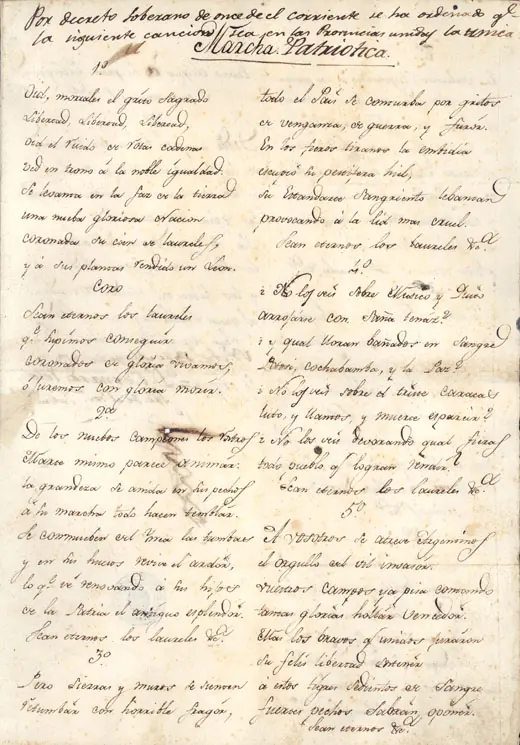 Por decreto soberano de once de el corriente se ha ordenado qe
la siguiente cancion sea en las Provincias unidas la unica
Marcha Patriotica.
1º
Oid, mortales el grito Sagrado
Libertad, Libertad, Libertad,
Oid el ruido de rotas cadenas
Ved en trono á la noble igualdad.
Se levanta en la faz de la tierra
una nueba gloriosa Nacion
coronada su cien de laureles,
y á sus plantas rendido un Leon.
Coro
Sean eternos los laureles
qe supimos conseguir
coronados de gloria vivamos,
ó juremos con gloria morir.
2ª
De los nuebos campeones los rostros
Marte mismo parece animar.
la grandeza se anida en sus pechos
á su marcha todo hacen temblar.
Se conmueben del Inca las tumbas
y en sus huecos revive el ardor,
lo qe vé renovando á sus hijos
de la Patria el antiguo esplendor.
Sean eternos los laureles &a
3º
Pero Sierras y muros se sienten
retumbar con horrible fragor,
todo el Pais se conturba por gritos
de venganza, de guerra, y furor.
En los fieros tiranos la embidia
escupió su pestifera hiel,
su Estandarte Sangriento lebantan
provocando á la lid mas cruel.
Sean eternos los laureles &a
4º
¿ No los veis sobre Mexico y Quito
arrojarse con Saña tenaz?
¿ y qual lloran bañados en Sangre
Potosi, cochabamba, y la Paz?
¿ No los veis sobre el triste caracas
luto, y llantos, y muerte esparcir?
¿ No los veis devorando qual fieras
todo pueblo qe logran rendir?
Sean eternos los laureles &a
5º
A vosotros se atreve Argentinos
el orgullo del vil invasor.
vuestros campos ya pisa contando
tantas glorias hollar vencedor.
Mas los bravos qe unidos juraron
Su feliz libertad sostener
a estos tigres sedientos de Sangre
fuertes pechos Sabrán oponer.
Sean eternos &a